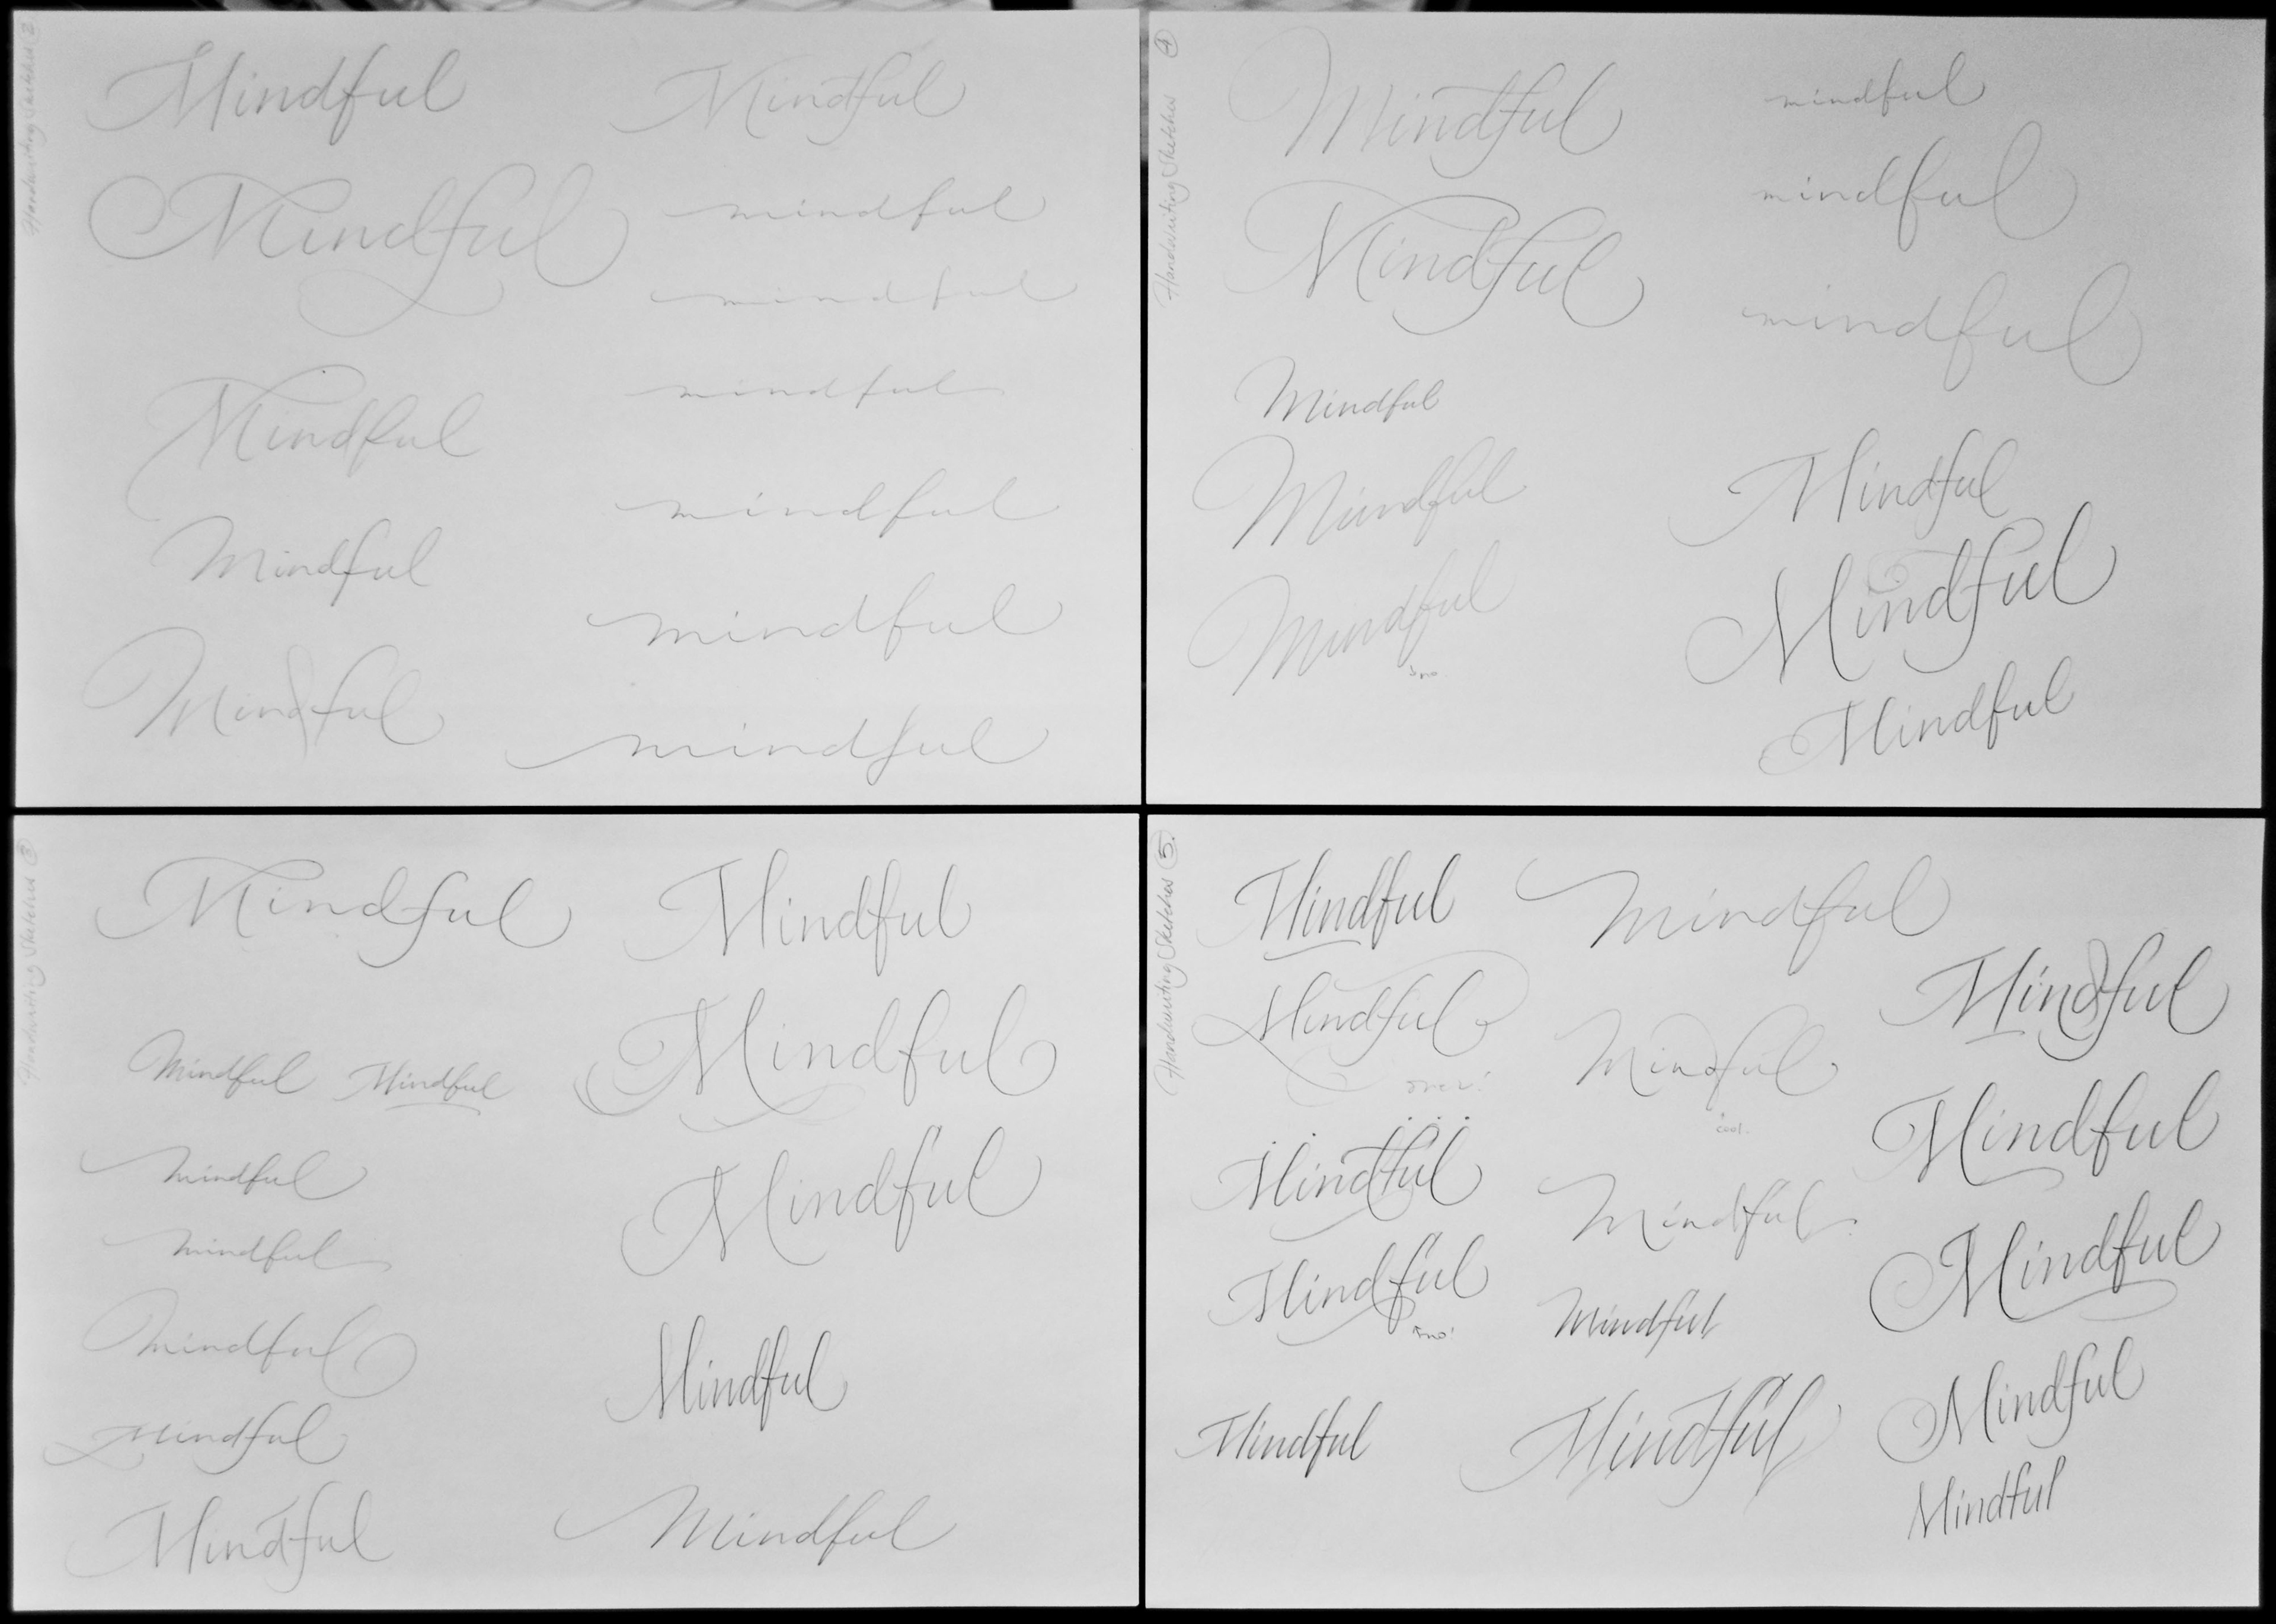 Handwriting Sketches 2
Mindful
Mindful
Mindful
Mindful
Mindful
Mindful
mindful
mindful
mindful
mindful
mindful
mindful
Handwriting Sketches 4
Mindful
Mindful
Mindful
Mindful
Mindful
no
mindful
mindful
mindful
Mindful
Mindful
Mindful
Handwriting Sketches 3
Mindful
Mindful Mindful
mindful
mindful
mindful
Mindful
Mindful
Mindful
Mindful
Mindful
Mindful
Mindful
Handwriting Sketches 5.
Mindful
Mindful
over!
Mindful
Mindful
no!
Mindful
Mindful
Mindful
cool.
Mindful
Mindful
Mindful
Mindful
Mindful
Mindful
Mindful
Mindful